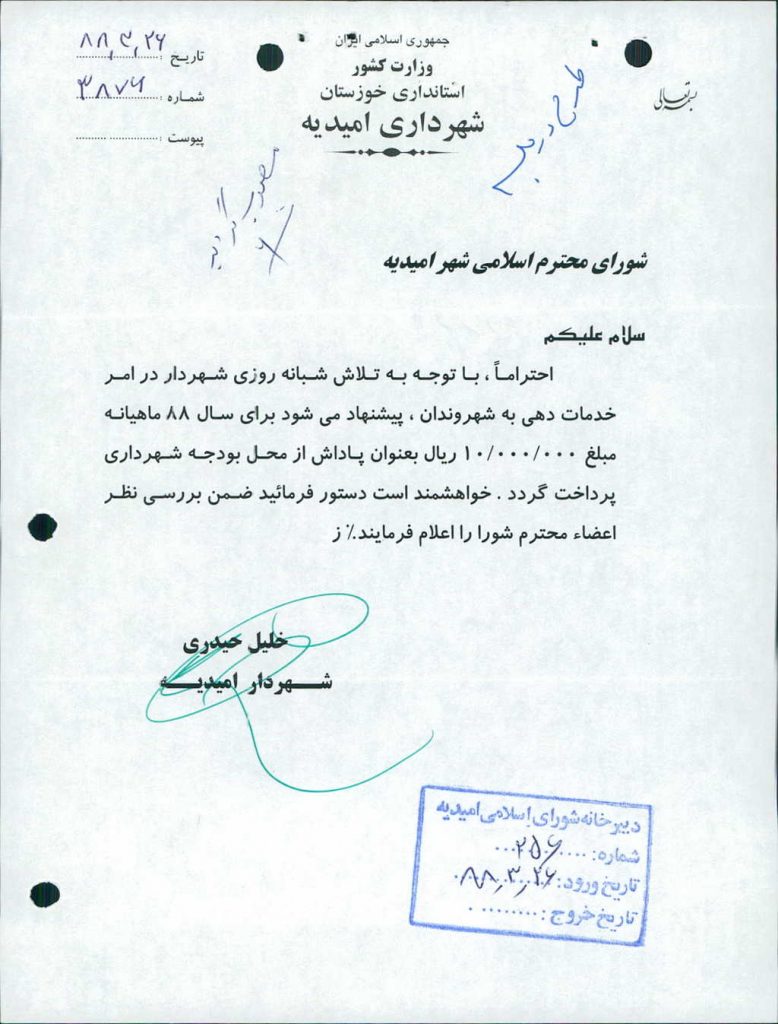 بسمه تعالی
جمهوری اسلامی ایران
وزارت کشور
استانداری خوزستان
شهرداری امیدیه
تاریخ : ۸۸٫۳٫۲۶
شماره : ۳۸۷۶
پیوست :
طرح در جلسه
مصوب گردید
شورای محترم اسلامی شهر امیدیه
سلام علیکم
احتراماً ، با توجه به تلاش شبانه روزی شهردار در امر
خدمات دهی به شهروندان ، پیشنهاد می شود برای سال ۸۸ ماهیانه
مبلغ ۱۰/۰۰۰/۰۰۰ ریال بعنوان پاداش از محل بودجه شهرداری
پرداخت گردد . خواهشمند است دستور فرمائید ضمن بررسی نظر
اعضاء محترم شورا را اعلام فرمایند.٪ ز
خلیل حیدری
شهردار امیدیه
دبیرخانه شورای اسلامی امیدیه
شماره: ۲۵۶
تاریخ ورود: ۸۸٫۳٫۲۶
تاریخ خروج :